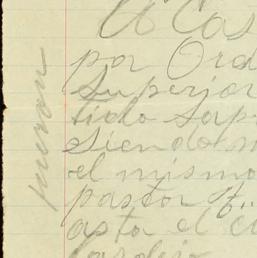 A Cas
por Ord
Superior
tido sap
Siendo m
el mismo
pastor q
asta el c